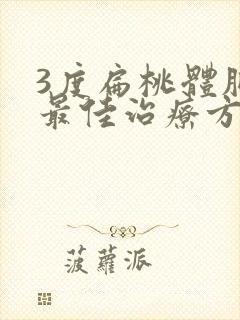 3度扁桃體
最佳治療方
菠蘿派